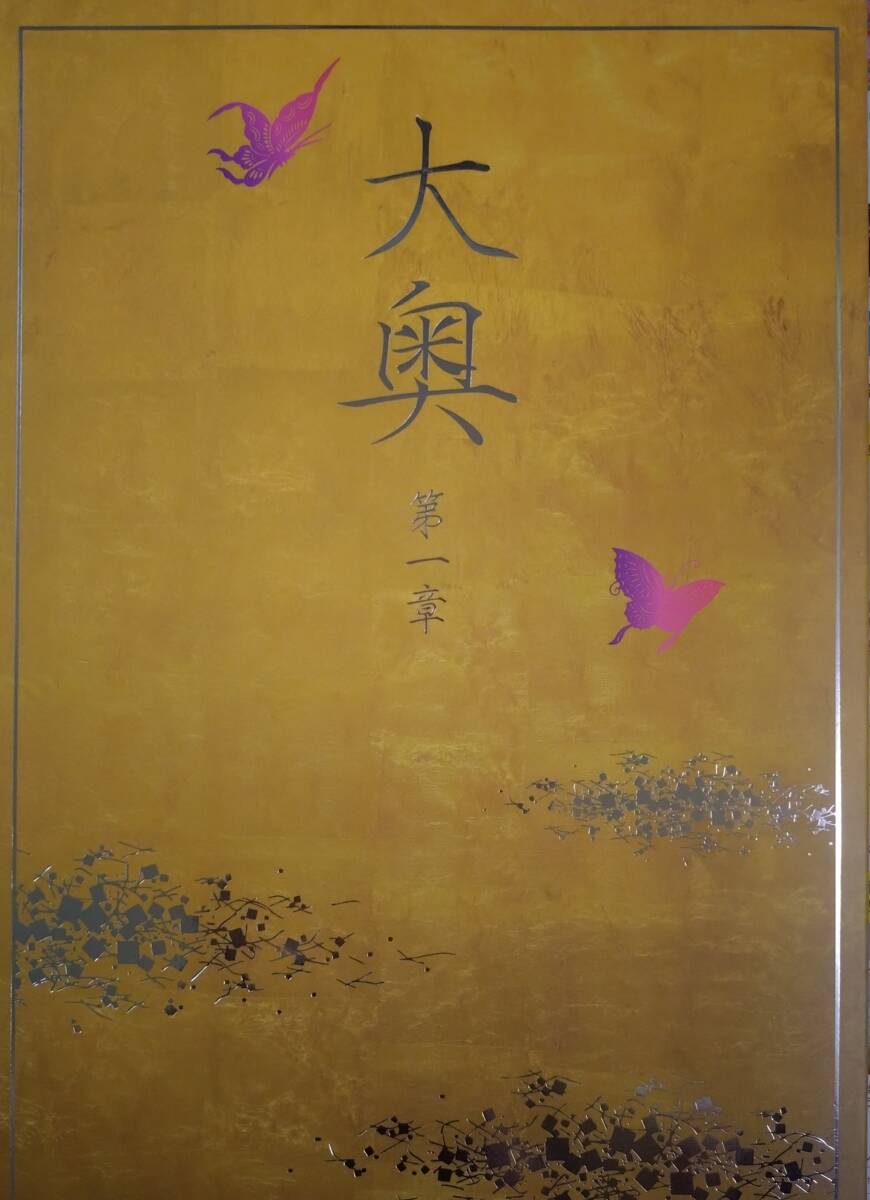 大奥
第一章